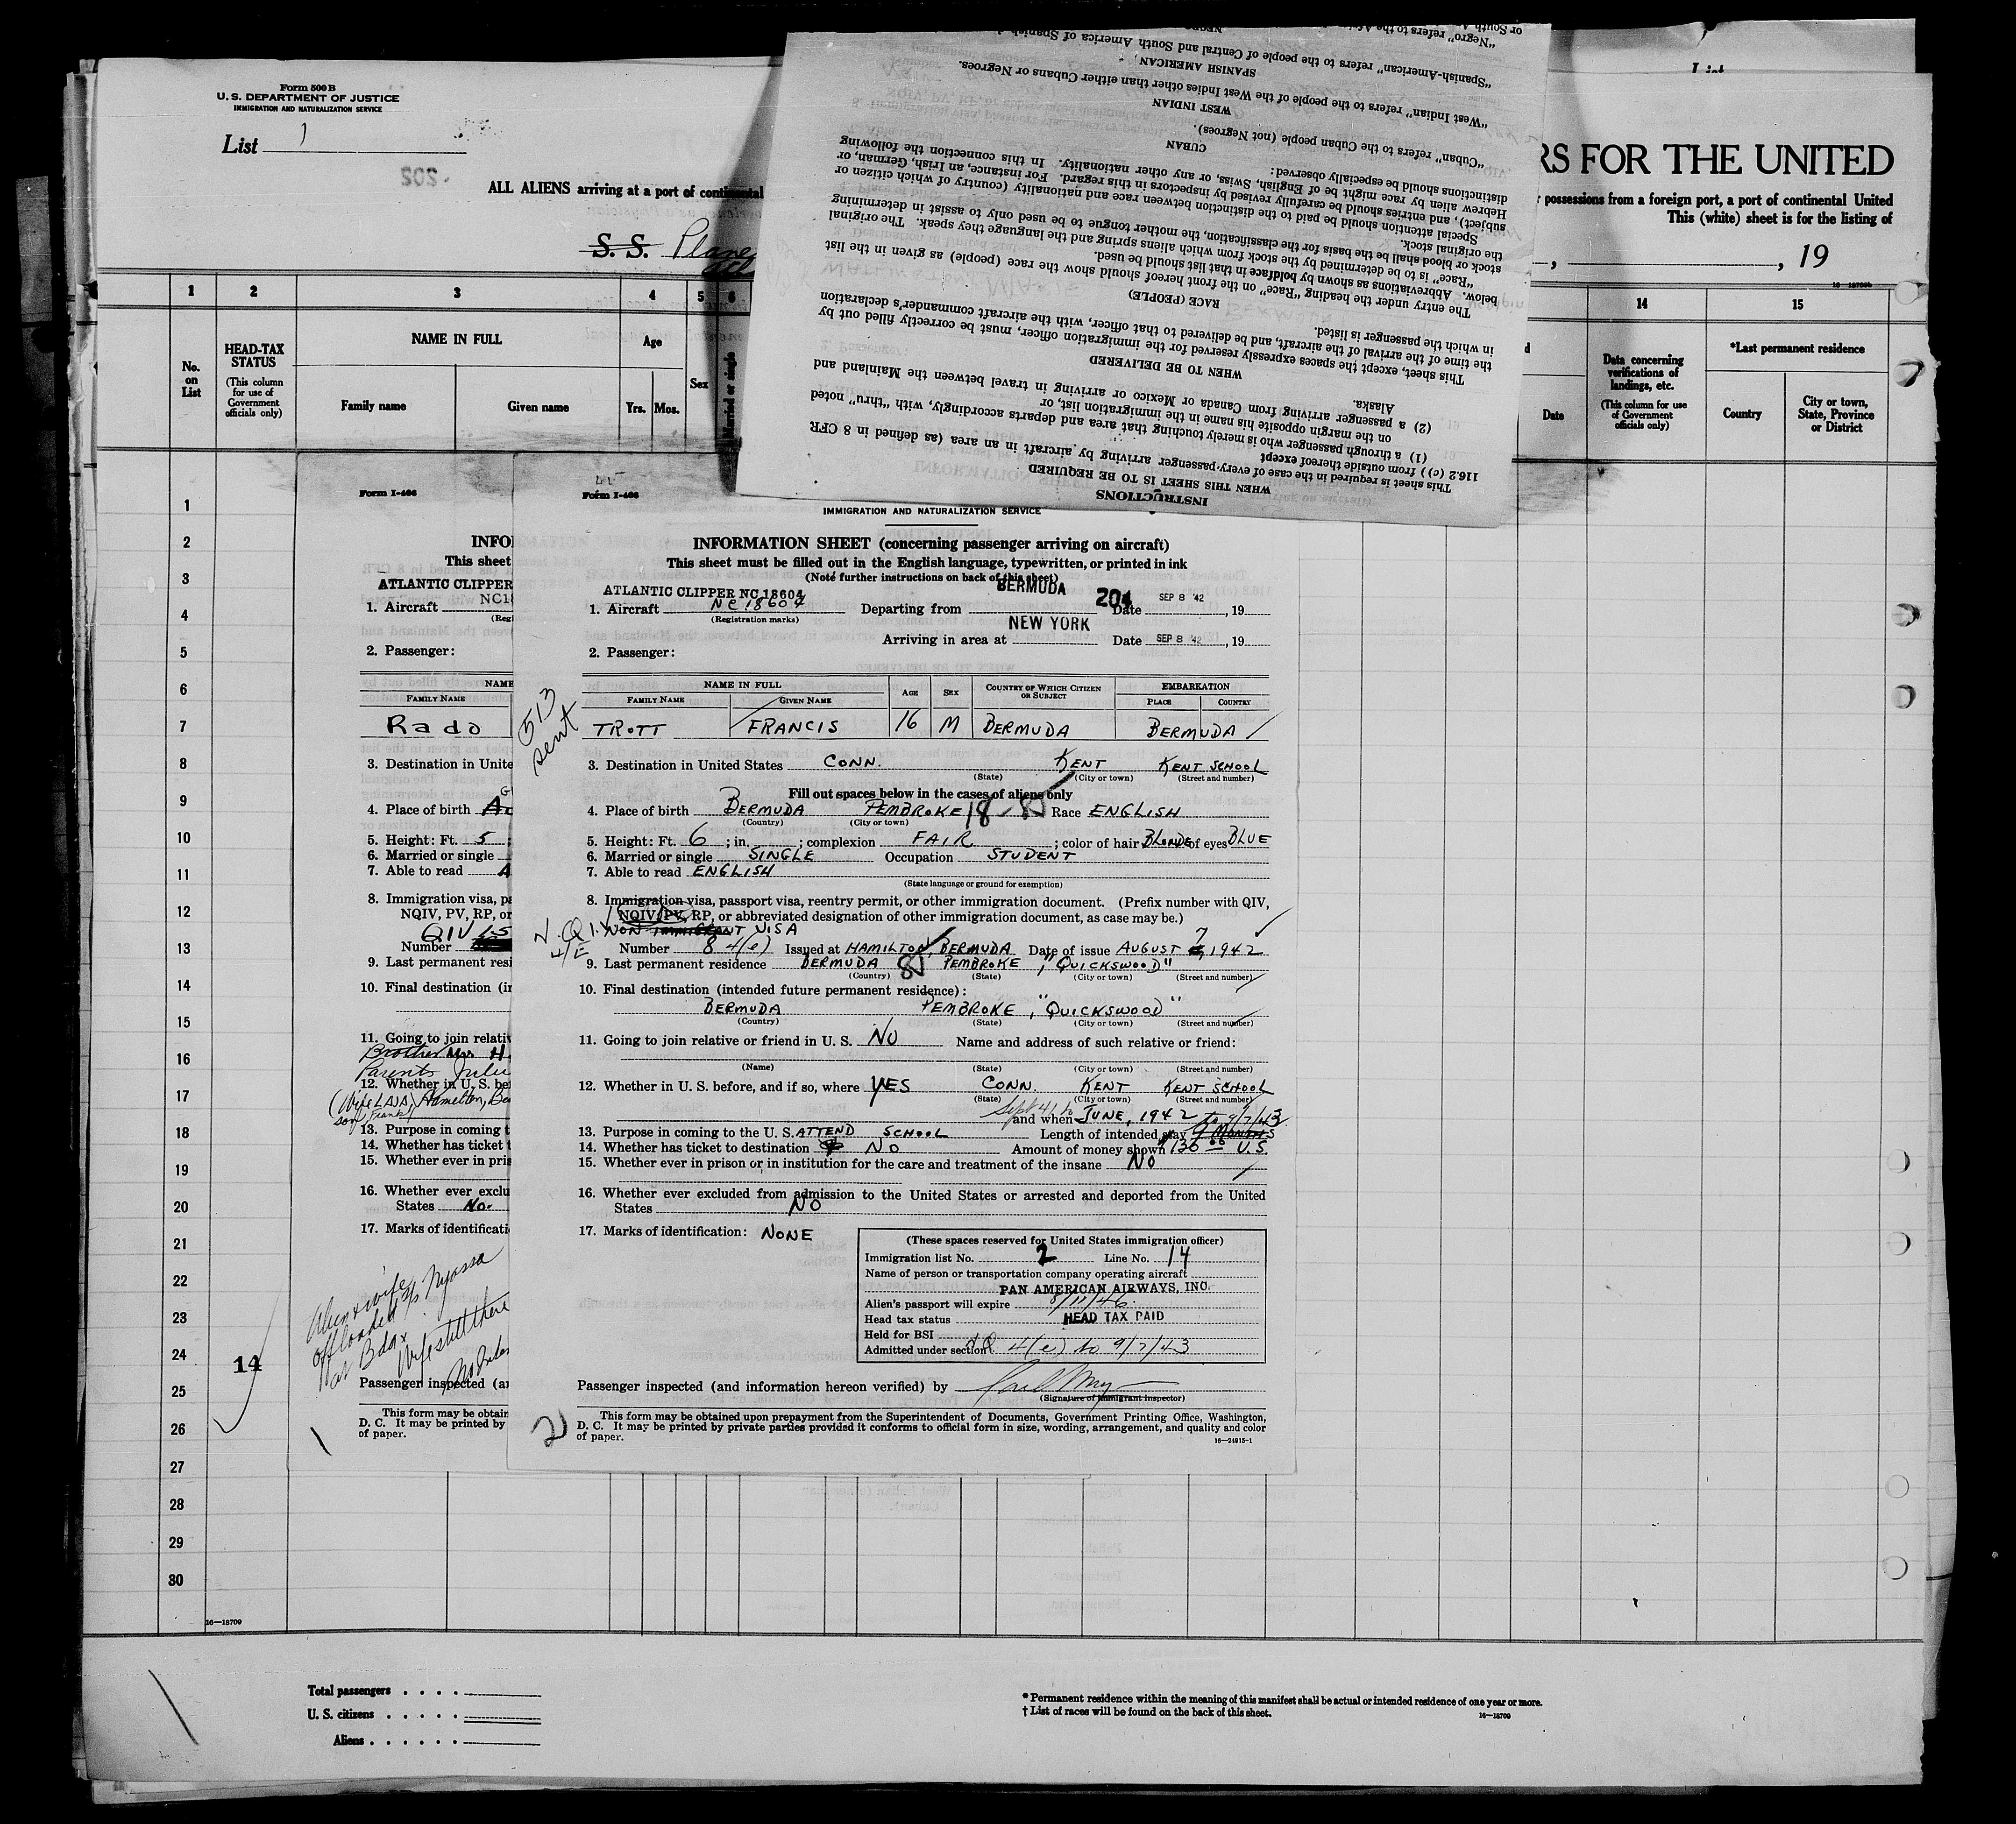 Form 500 B
U. S. DEPARTMENT OF JUSTICE
IMMIGRATION AND NATURALIZATION SERVICE
List 1
202
ALL ALIENS arriving at a port of continental
S. S. Plane
RS FOR THE UNITED
possessions from a foreign port, a port of continental United
This (white) sheet is for the listing of
, , 19
1 2 3 4 5 6 14 15
No. on List
HEAD-TAX STATUS
(This column for use of Government officials only)
NAME IN FULL
Family name Given name
Age
Yrs. Mos.
Sex
Married or single
Date
Data concerning verifications of landings, etc.
(This column for use of Government officials only)
*Last permanent residence
Country
City or town, State, Province or District
INSTRUCTIONS
WHEN THIS SHEET IS TO BE REQUIRED
This sheet is required in the case of every passenger arriving by aircraft in an area (as defined in 8 CFR
116.2 (c)) from outside thereof except
(1) a through passenger who is merely touching that area and departs accordingly, with "thru" noted
on the margin opposite his name in the immigration list, or
(2) a passenger arriving from Canada or Mexico or arriving in travel between the Mainland and
Alaska.
WHEN TO BE DELIVERED
This sheet, except the spaces expressly reserved for the immigration officer, must be correctly filled out by
the time of the arrival of the aircraft, and be delivered to that officer, with the aircraft commander's declaration
in which the passenger is listed.
RACE (PEOPLE)
The entry under the heading "Race" on the front hereof should show the race (people) as given in the list
below. Abbreviations as shown by boldface in that list should be used.
"Race" is to be determined by the stock from which aliens spring and the language they speak. The original
stock or blood shall be the basis for the classification, the mother tongue to be used only to assist in determining
the original stock.
Special attention should be paid to the distinction between race and nationality (country of which citizen or
subject), and entries should be carefully revised by inspectors in this regard. For instance, an Irish, German, or
Hebrew alien by race might be of English, Swiss, or any other nationality. In this connection the following
distinctions should be especially observed:
CUBAN
"Cuban" refers to the Cuban people (not Negroes).
WEST INDIAN
"West Indian" refers to the people of the West Indies other than either Cubans or Negroes.
SPANISH AMERICAN
"Spanish-American" refers to the people of Central and South America of Spanish
NEGRO
"Negro" refers to the
Form I-466
INFO
This sheet
ATLANTIC CLIPPER
1. Aircraft NC18
2. Passenger:
NAME
FAMILY NAME
Rado
3. Destination in Unite
4. Place of birth
5. Height: Ft. 5
6. Married or single
7. Able to read
8. Immigration visa, pa
NQIV, PV, RP, or
QIV
Number
9. Last permanent resi
10. Final destination (in
11. Going to join relativ
Brother Mr H
Parents Juliu
12. Whether in U. S. bef
(Wife LAJA) Hamilton, Be
son Frank
13. Purpose in coming t
14. Whether has ticket t
15. Whether ever in pris
16. Whether ever exclu
States No.
17. Marks of identificati
Alien & wife
offloaded s/s Nyassa
at Bda
Wife still there
Passenger inspected (an
This form may be obtain
D. C. It may be printed by
of paper.
Form I-466
IMMIGRATION AND NATURALIZATION SERVICE
INFORMATION SHEET (concerning passenger arriving on aircraft)
This sheet must be filled out in the English language, typewritten, or printed in ink
(Note further instructions on back of this sheet)
ATLANTIC CLIPPER NC 18604
1. Aircraft NC 18604 Departing from BERMUDA 204 Date SEP 8 '42, 19
(Registration marks)
Arriving in area at NEW YORK Date SEP 8 '42, 19
2. Passenger:
513
sent
NAME IN FULL
FAMILY NAME GIVEN NAME AGE SEX COUNTRY OF WHICH CITIZEN OR SUBJECT EMBARKATION PLACE COUNTRY
TROTT FRANCIS 16 M BERMUDA BERMUDA
3. Destination in United States CONN. KENT KENT SCHOOL
(State) (City or town) (Street and number)
Fill out spaces below in the cases of aliens only
4. Place of birth BERMUDA PEMBROKE 18 Race ENGLISH
(Country) (City or town)
5. Height: Ft. 6; in. ; complexion FAIR; color of hair BLONDE of eyes BLUE
6. Married or single SINGLE Occupation STUDENT
7. Able to read ENGLISH
(State language or ground for exemption)
8. Immigration visa, passport visa, reentry permit, or other immigration document. (Prefix number with QIV,
NQIV, PV, RP, or abbreviated designation of other immigration document, as case may be.)
N.Q.I.V NON IMMIGRANT VISA
4/E
Number 8 4(e) Issued at HAMILTON, BERMUDA Date of issue AUGUST 7, 1942
9. Last permanent residence BERMUDA PEMBROKE, "QUICKSWOOD"
(Country) (State) (City or town) (Street and number)
10. Final destination (intended future permanent residence):
BERMUDA PEMBROKE, "QUICKSWOOD"
(Country) (State) (City or town) (Street and number)
11. Going to join relative or friend in U. S. NO Name and address of such relative or friend:
(Name) (State) (City or town) (Street and number)
12. Whether in U. S. before, and if so, where YES CONN. KENT KENT SCHOOL
(State) (City or town) (Street and number)
Sept 41 to and when JUNE, 1942 to 9/7/43
13. Purpose in coming to the U. S. ATTEND SCHOOL Length of intended stay 9 MONTHS
14. Whether has ticket to destination NO Amount of money shown $130.00 U.S.
15. Whether ever in prison or in institution for the care and treatment of the insane NO
16. Whether ever excluded from admission to the United States or arrested and deported from the United
States NO
17. Marks of identification: NONE
(These spaces reserved for United States immigration officer)
Immigration list No. 2 Line No. 14
Name of person or transportation company operating aircraft
PAN AMERICAN AIRWAYS, INC.
Alien's passport will expire 8/11/46.
Head tax status HEAD TAX PAID
Held for BSI
Admitted under section 4(e) to 9/7/43
Passenger inspected (and information hereon verified) by
(Signature of immigrant inspector)
2
This form may be obtained upon prepayment from the Superintendent of Documents, Government Printing Office, Washington,
D. C. It may be printed by private parties provided it conforms to official form in size, wording, arrangement, and quality and color
of paper.
16—24915-1
1
2
3
4
5
6
7
8
9
10
11
12
13
14
15
16
17
18
19
20
21
22
23
24
25
26
27
28
29
30
14
16—18709
Total passengers . . . .
U. S. citizens . . . . .
Aliens . . . . . .
* Permanent residence within the meaning of this manifest shall be actual or intended residence of one year or more.
† List of races will be found on the back of this sheet.
16—18709